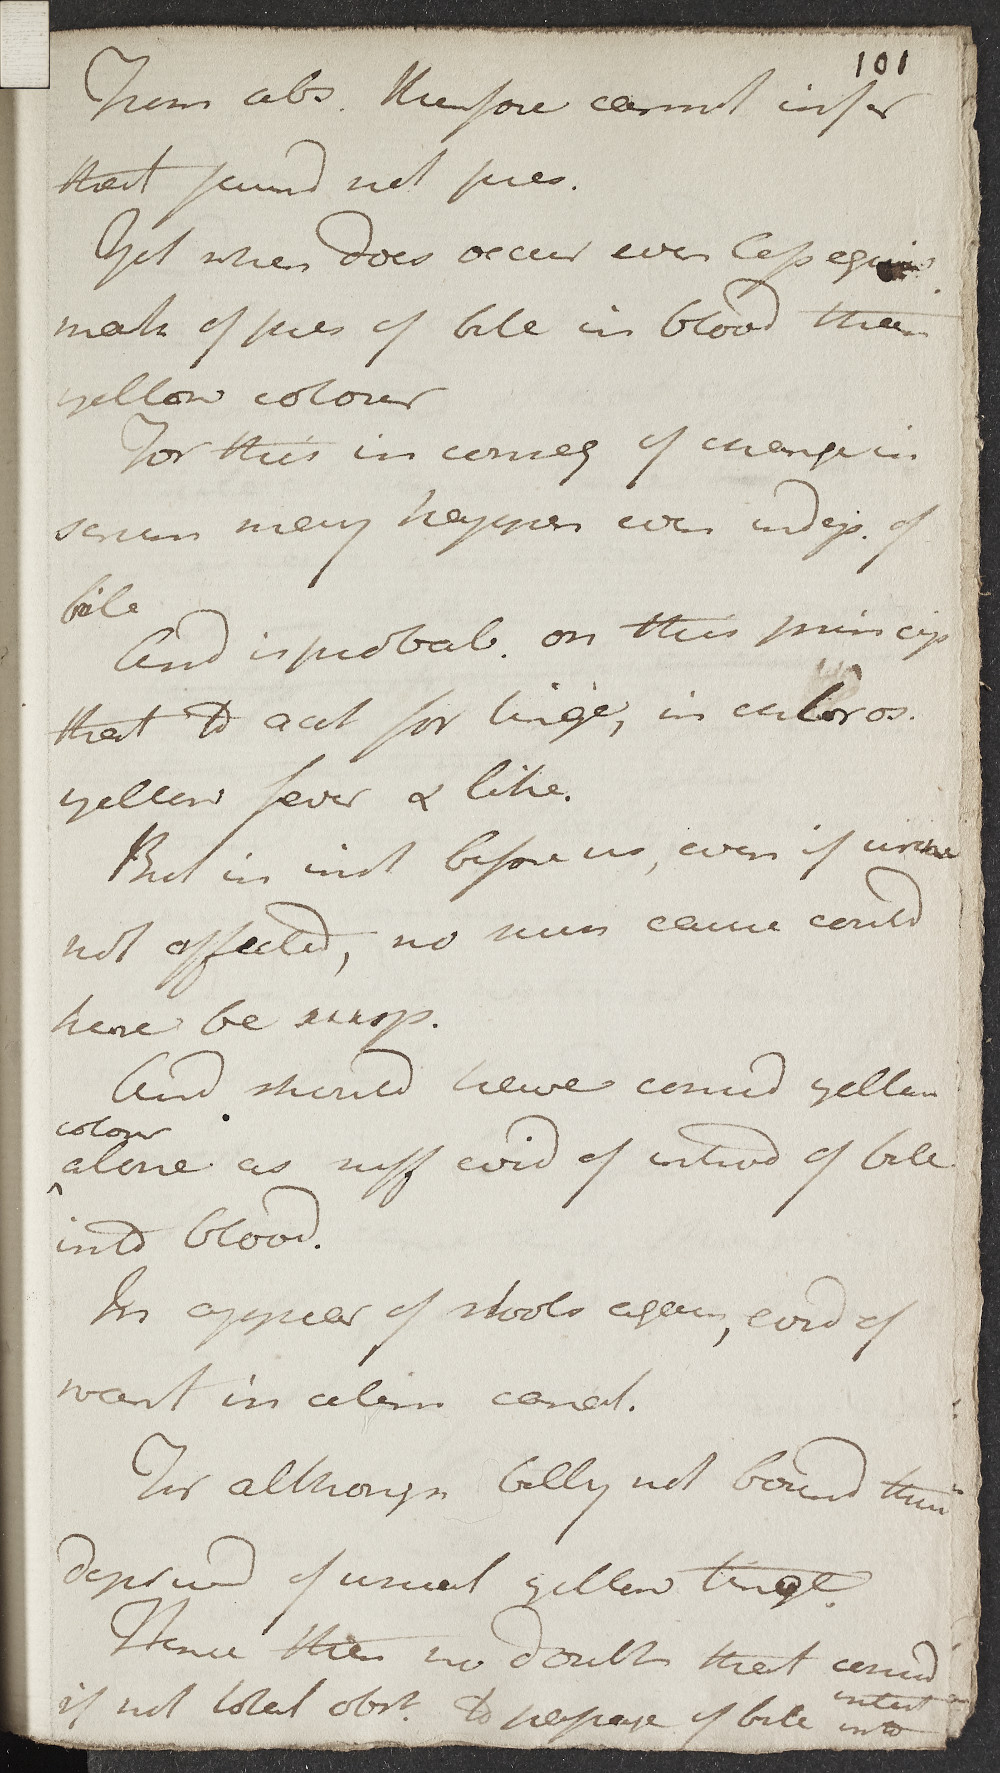 101
From abs. therefore cannot infer
that jaund not pres.
Yet when does occur even less
mark of pres of bile in blood than
yellow colour
For this in conseq of change in
serum may happen even indep. of
bile
And is probab. on this princip
that to acct for tinge, in chloros.
yellow fever & like.
But in inst before us, even if urine
not affected, no such cause could
here be susp.
And should have consid yellow
colour
alone as suff evid of introd of bile
into blood.
In appear of stools again, evid of
want in alim canal.
For although belly not bound
deprived of usual yellow tinge.
Hence then no doubt that consid
if not total obst. to passage of bile into
intest